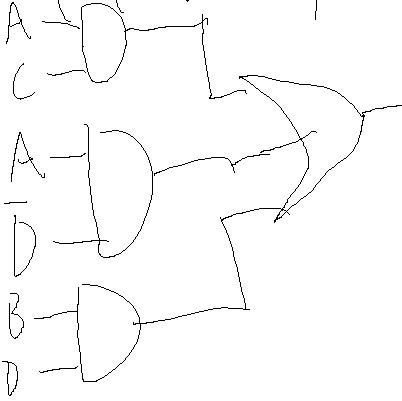 A
C
A
D̅
B
D